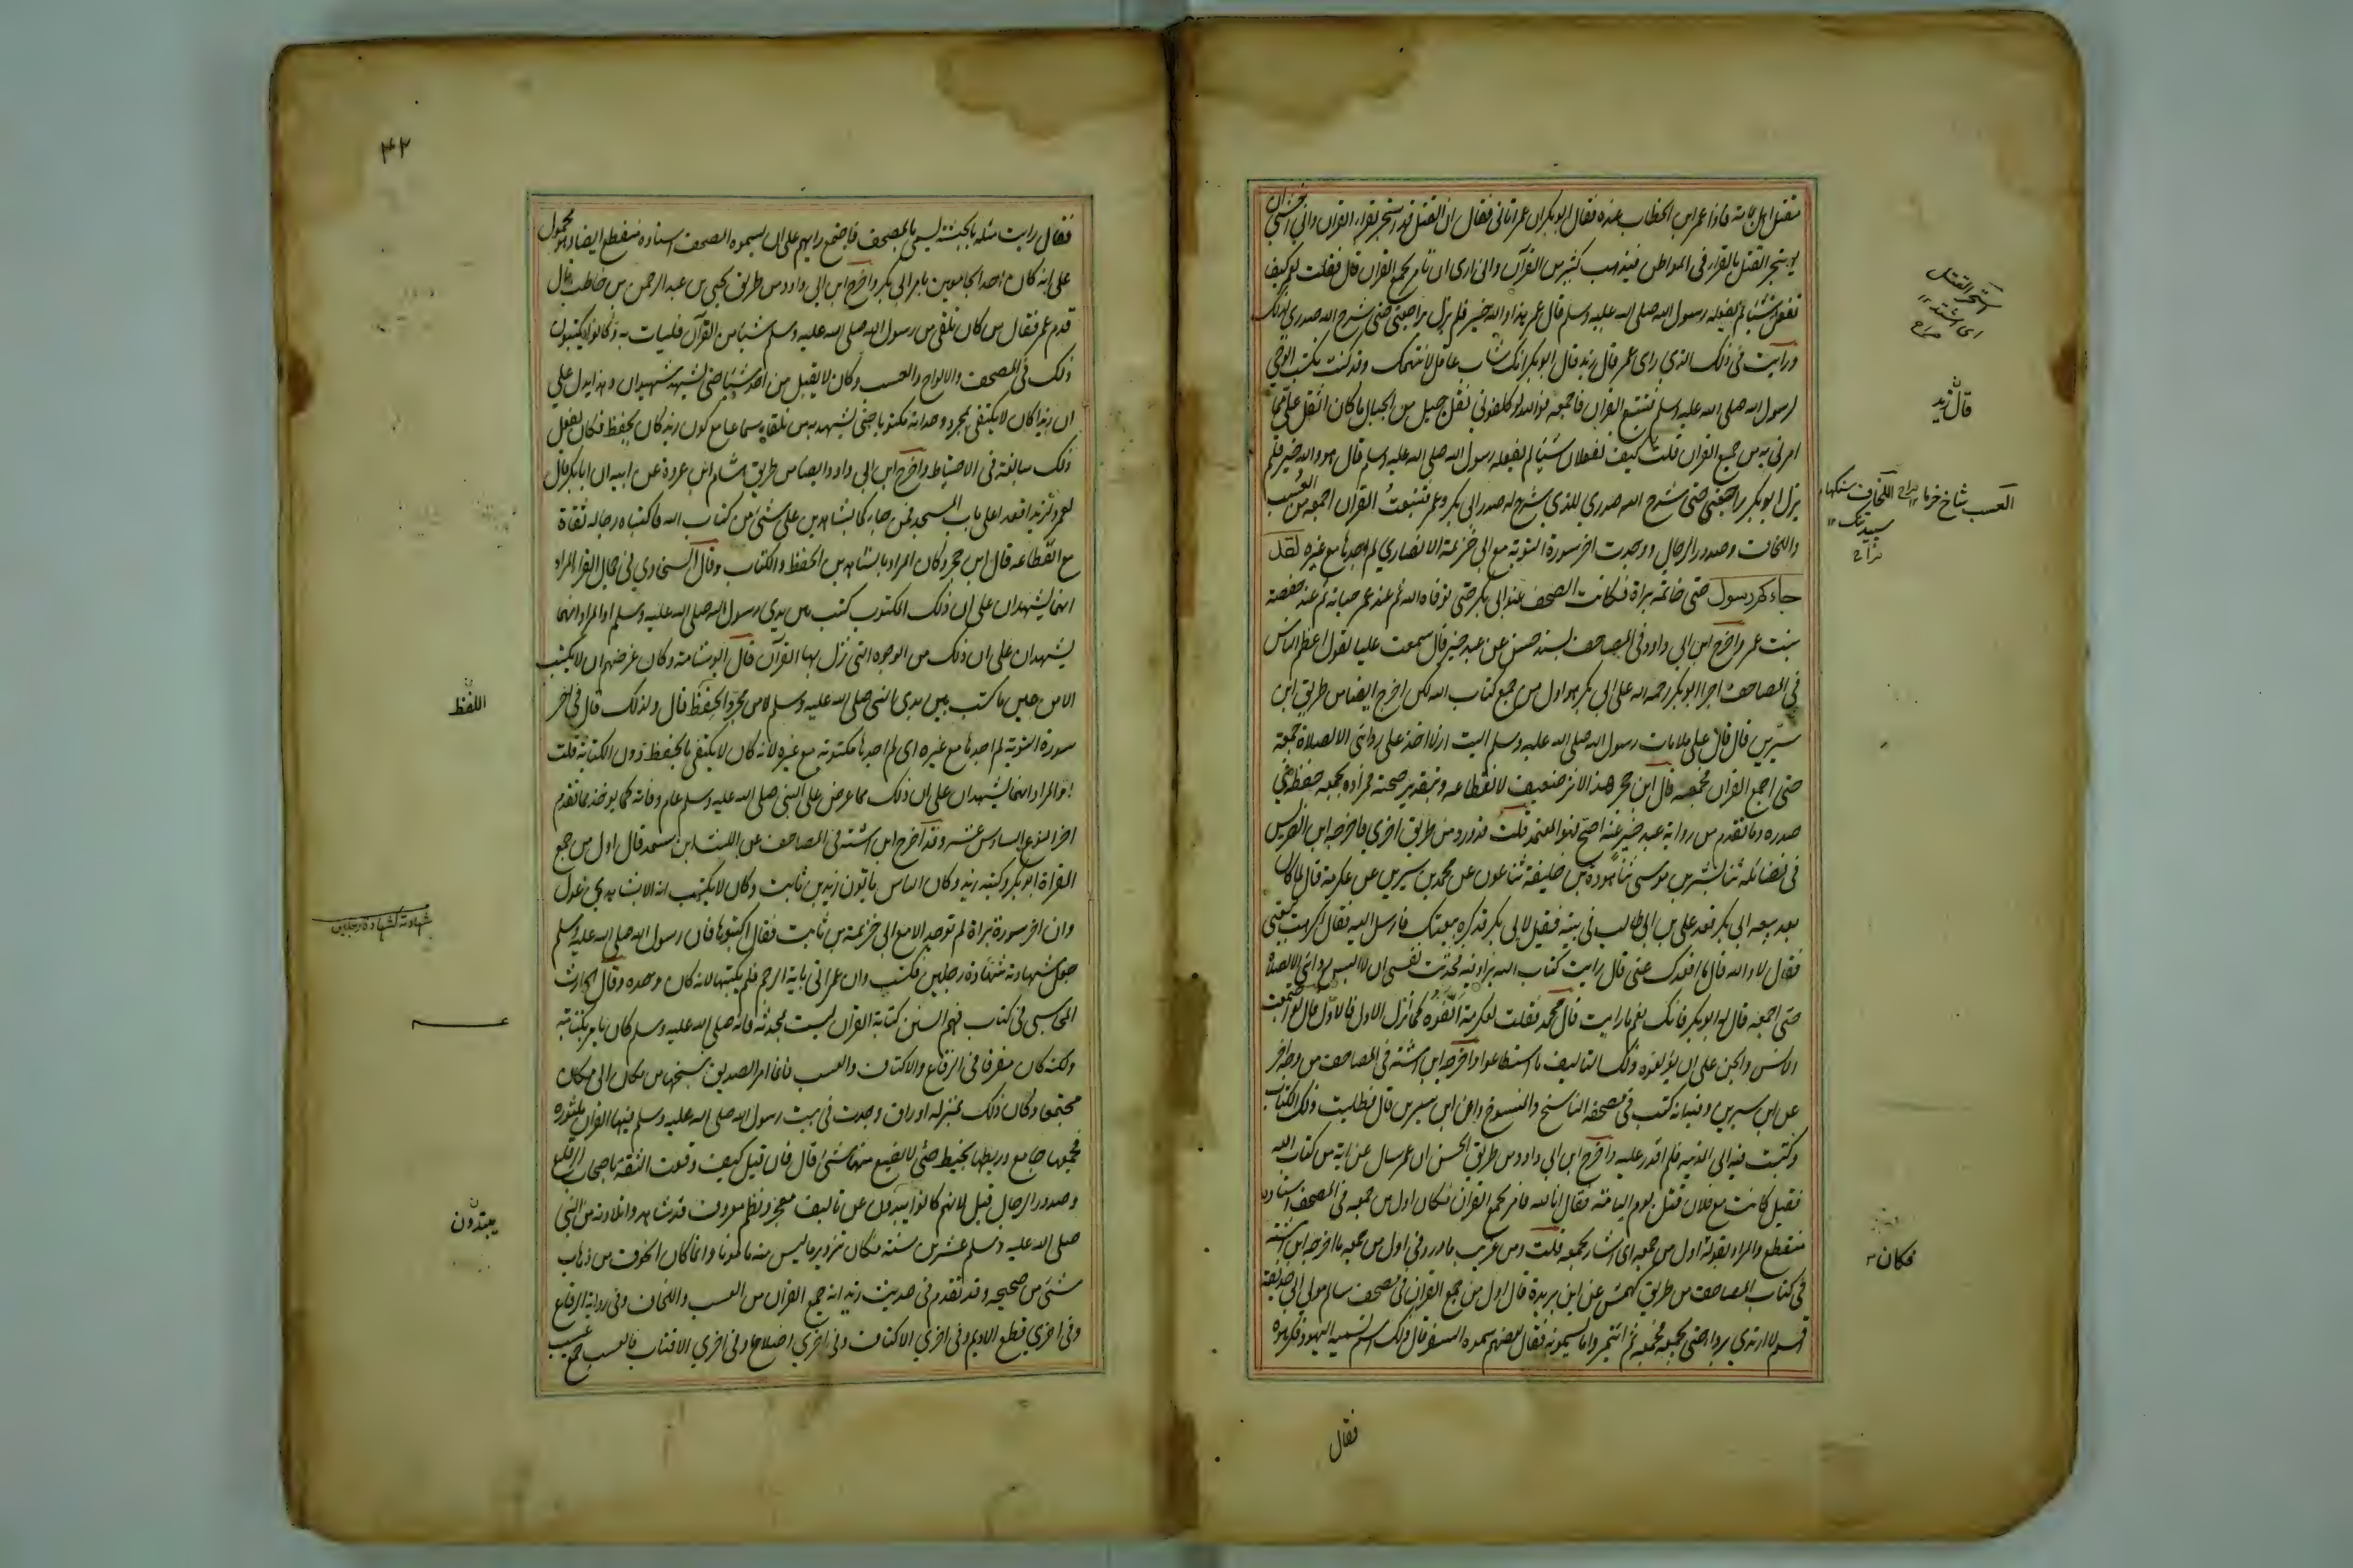 مقتل اهل يمامة فاذا عمر ابن الخطاب عنده فقال ابو بكر ان عمر اتاني فقال ان القتل قد استحر بقراء القران واني اخشى ان
يستحر القتل بالقراء في المواطن فيذهب كثير من القرآن واني ارى ان تامر بجمع القران قال فقلت لعمر كيف
تفعل شيئا لم يفعله رسول الله صلى الله عليه وسلم قال عمر هذا والله خير فلم يزل يراجعني حتى شرح الله صدري لذلك
ورايت في ذلك الذي راى عمر قال زيد قال ابو بكر انك شاب عاقل لا نتهمك وقد كنت تكتب الوحي
لرسول الله صلى الله عليه وسلم فتتبع القران فاجمعه فوالله لو كلفوني نقل جبل من الجبال ما كان اثقل علي مما
امرني به من جمع القران قلت كيف تفعلان شيئا لم يفعله رسول الله صلى الله عليه وسلم قال هو والله خير فلم
يزل ابو بكر يراجعني حتى شرح الله صدري للذي شرح له صدر ابي بكر وعمر فتتبعت القران اجمعه من العسب
واللخاف وصدور الرجال ووجدت اخر سورة التوبة مع ابي خزيمة الانصاري لم اجدها مع غيره لقد
جاءكم رسول حتى خاتمة براة فكانت الصحف عند ابي بكر حتى توفاه الله ثم عند عمر حياته ثم عند حفصة
بنت عمر واخرج ابن ابي داود في المصاحف بسند حسن عن عبد خير قال سمعت عليا يقول اعظم الناس
في المصاحف اجرا ابو بكر رحمه الله على ابي بكر هو اول من جمع كتاب الله لكن اخرج ايضا من طريق ابن
سيرين قال قال علي لما مات رسول الله صلى الله عليه وسلم اليت ان لا اخذ علي ردائي الا لصلاة جمعة
حتى اجمع القران فجمعه قال ابن حجر هذا الاثر ضعيف لانقطاعه وبتقدير صحته فمراده بجمعه حفظه في
صدره وما تقدم من رواية عبد خير عنه اصح فهو المعتمد قلت قد ورد من طريق اخرى فاخرجه ابن الضريس
في فضائله ثنا بشر بن موسى ثنا هوذة بن خليفة ثنا عون عن محمد بن سيرين عن عكرمة قال لما كان
بعد بيعه ابي بكر قعد علي بن ابي طالب في بيته فقيل لابي بكر قد كره بيعتك فارسل اليه فقال اكرهت بيعتي
فقال لا والله قال ما اقعدك عني قال رايت كتاب الله يزاد فيه فحدثت نفسي ان لا البس ردائي الا لصلاة
حتى اجمعه قال له ابو بكر فانك نعم ما رايت قال محمد فقلت لعكرمة الفوه كما انزل الاول فالاول قال لو اجتمعت
الانس والجن على ان يؤلفوه ذلك التاليف ما استطاعوا واخرجه ابن اشتة في المصاحف من وجه اخر
عن ابن سيرين وفيه انه كتب في مصحفه الناسخ والمنسوخ وان ابن سيرين قال فطلبت ذلك الكتاب
وكتبت فيه الى المدينه فلم اقدر عليه واخرج ابن ابي داود من طريق الحسن ان عمر سال عن اية من كتاب الله
فقيل كانت مع فلان قتل يوم اليمامة فقال انا لله فامر بجمع القران فكان اول من جمعه في المصحف اسناده
منقطع والمراد بقوله اول من جمعه اى اشار بجمعه قلت ومن غريب ما ورد في اول من جمعه ما اخرجه ابن اشتة
في كتاب المصاحف من طريق كهمس عن ابن بريدة قال اول من جمع القران في مصحف سالم مولى ابي حذيفة
اقسم لا ارتدي برداء حتى يجمعه فجمعه ثم ائتمروا ما يسمونه فقال بعضهم سموه السفر قال ذلك اسم تسميه اليهود فكرهوه
فقال
استحر القتل
اى اشتد ١٢
صراح
قال زيد
العسب شاخ خرما ١٢ صراح اللخاف سنگهاء
سپيد تنك ١٢
صراح
فكان
٤٢
فقال رايت مثله بالحبشة يسمى بالمصحف فاجتمع رايهم على ان يسموه المصحف اسناده منقطع ايضا وهو محمول
على انه كان احد الجامعين بامر ابي بكر واخرج ابن ابي داود من طريق يحيى بن عبد الرحمن بن حاطب قال
قدم عمر فقال من كان تلقى من رسول الله صلى الله عليه وسلم شيا من القرآن فليات به وكانوا يكتبون
ذلك في الصحف والالواح والعسب وكان لا يقبل من احد شيئا حتى يشهد شهيدان وهذا يدل على
ان زيدا كان لا يكتفي بمجرد وجدانه مكتوبا حتى يشهد به من تلقاه سماعا مع كون زيد كان يحفظ فكان يفعل
ذلك مبالغة في الاحتياط واخرج ابن ابي داود ايضا من طريق هشام ابن عروة عن ابيه ان ابا بكر قال
لعمر ولزيد اقعدا على باب المسجد فمن جاءكما بشاهدين على شئ من كتاب الله فاكتباه رجاله ثقاة
مع انقطاعه قال ابن حجر وكان المراد بالشاهدين الحفظ والكتاب وقال السخاوي في جمال القرا المراد
انهما يشهدان على ان ذلك المكتوب كتب بين يدي رسول الله صلى الله عليه وسلم او المراد انهما
يشهدان على ان ذلك من الوجوه التي نزل بها القرآن قال ابو شامة وكان غرضهم ان لا يكتب
الا من عين ما كتب بين يدي النبي صلى الله عليه وسلم لا من مجرد الحفظ قال ولذلك قال في اخر
سورة التوبة لم اجدها مع غيره اى لم اجدها مكتوبة مع غيره لانه كان لا يكتفي بالحفظ دون الكتابة قلت
او المراد انهما يشهدان على ان ذلك مما عرض على النبي صلى الله عليه وسلم عام وفاته كما يوخذ مما تقدم
اخر النوع السادس عشر وقد اخرج ابن اشتة في المصاحف عن الليث ابن سعد قال اول من جمع
القراة ابو بكر وكتبه زيد وكان الناس ياتون زيد بن ثابت وكان لا يكتب اية الا بشاهدي عدل
وان اخر سورة براة لم توجد الا مع ابي خزيمة بن ثابت فقال اكتبوها فان رسول الله صلى الله عليه وسلم
جعل شهادته شهادة رجلين فكتب وان عمر اتى باية الرجم فلم يكتبها لانه كان وحده وقال الحارث
المحاسبي في كتاب فهم السنن كتابة القران ليست بمحدثة فانه صلى الله عليه وسلم كان يامر بكتابته
ولكنه كان مفرقا في الرقاع والاكتاف والعسب فانما امر الصديق بنسخها من مكان الى مكان
مجتمعا وكان ذلك بمنزلة اوراق وجدت في بيت رسول الله صلى الله عليه وسلم فيها القران منثوره
فجمعها جامع وربطها بخيط حتى لا يضيع منها شئ قال فان قيل كيف وقعت الثقة باصحاب الرقاع
وصدور الرجال قيل لانهم كانوا يبدون عن تاليف معجز ونظم معروف قد شاهدوا تلاوته من النبي
صلى الله عليه وسلم عشرين سنة فكان تزوير ما ليس منه مامونا وانما كان الخوف من ذهاب
شئ من صحيحه وقد تقدم في حديث زيد انه جمع القران من العسب واللخاف وفي رواية الرقاع
وفي اخرى قطع الاديم وفي اخرى الاكتاف وفي اخرى اضلاع وفي اخرى الاقتاب فالعسب جمع عسيب
اللفظ
شهادته كشهادة رجلين
يبتدون